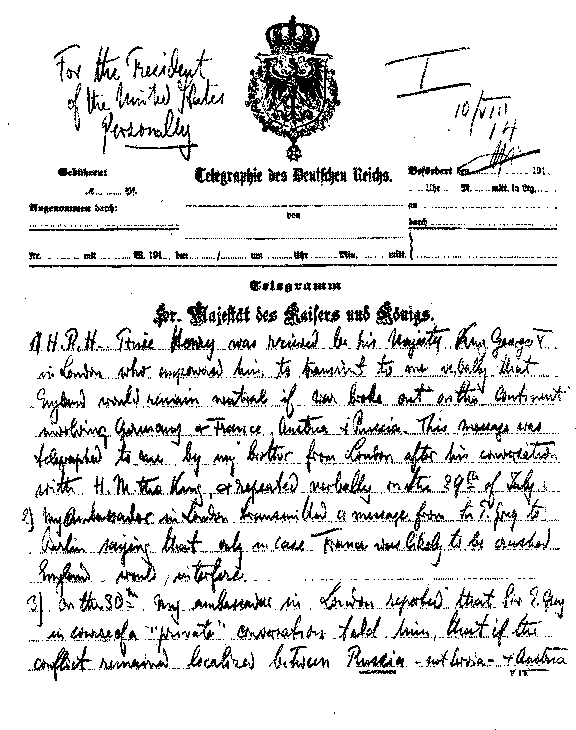 For the President
of the United States
Personally
I
10/VIII
14
Telegraphie des Deutschen Reichs.
Gebühren:
Befördert den 191
Uhr M. mitt. in Ltg.
Angenommen durch:
von
an
durch
Nr. mit W. 191 den / um Uhr Min. mitt.
Telegramm
Sr. Majestät des Kaisers und Königs.
1) H.R.H. Prince Henry was received by his Majesty King George V
in London who empowered him to transmit to me verbally that
England would remain neutral if war broke out on the Continent
involving Germany & France, Austria & Russia. This message was
telegraphed to me by my brother from London after his conversation
with H.M. the King, & repeated verbally on the 29th of July.
2) My Ambassador in London transmitted a message from Sir E. Grey to
Berlin saying that only in case France was likely to be crushed
England would interfere.
3) On the 30th my ambassador in London reported that Sir E. Grey
in course of a "private" conversation told him, that if the
conflict remained localized between Russia - not Servia - & Austria